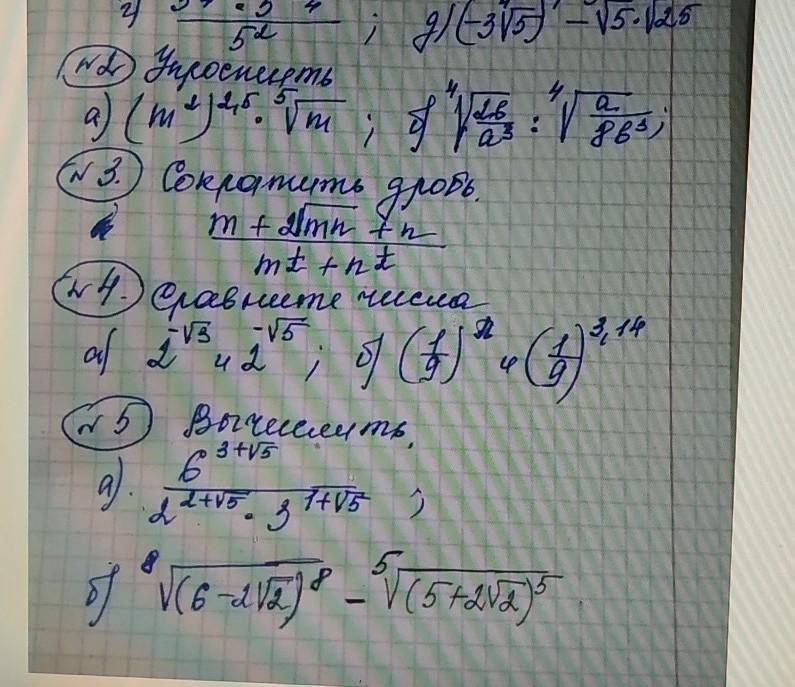 г) / 5² ; д) (-3∜5) - √5·√25
№2 Упростить
а) (m²)^2,5 · ⁵√m ; б) ⁴√(2b/a³) : ⁴√(a/8b³);
№3. Сократить дробь.
(m + 2√mn + n) / (m^½ + n^½)
№4. Сравните числа
а) 2^(-√3) и 2^(-√5) ; б) (1/9)^π и (1/9)^3,14
№5 Вычислить.
а). 6^(3+√5) / (2^(2+√5) · 3^(1+√5)) ;
б) ⁸√(6-2√2)⁸ - ⁵√(5+2√2)⁵